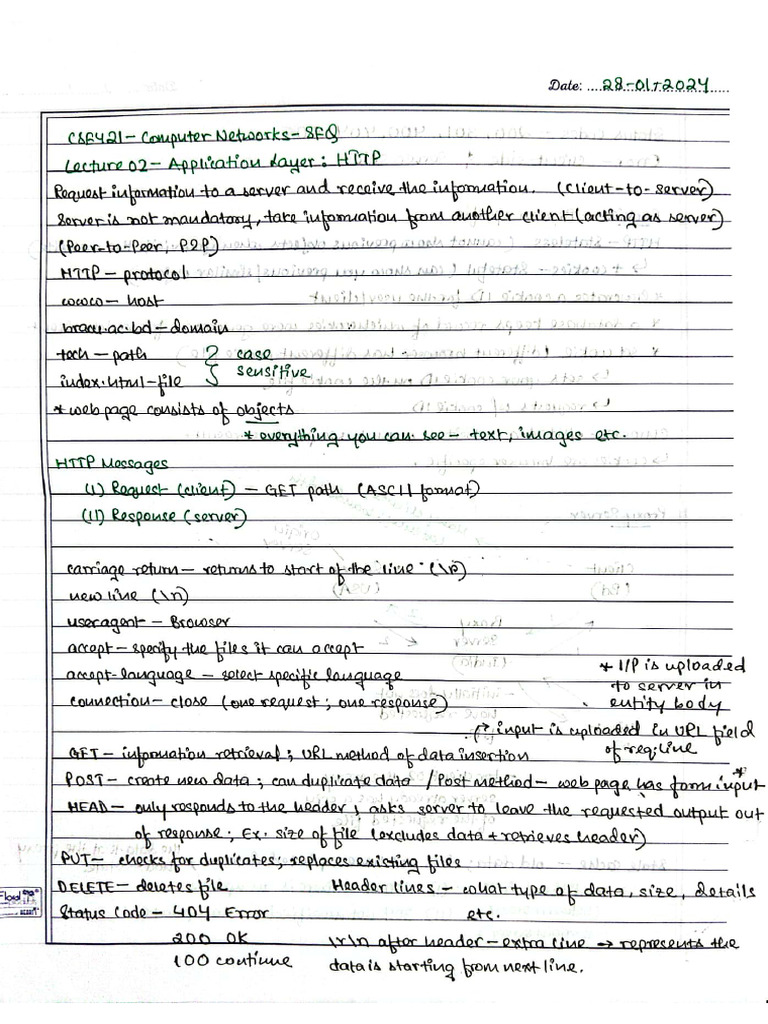 Date: ....28-01-2024.....
CSE421- Computer Networks- SEQ
Lecture 02- Application Layer: HTTP
Request information to a server and receive the information. (Client-to-server)
Server is not mandatory, take information from another client (acting as server)
(Peer-to-Peer, P2P)
HTTP - protocol
www - host
bracu.ac.bd - domain
tech - path } case
index.html - file } sensitive
* web page consists of objects
* everything you can see - text, images etc.
HTTP Messages
(I) Request (client) - GET path (ASCII format)
(II) Response (server)
carriage return - returns to start of the line (\r)
new line (\n)
useragent - Browser
accept - specify the files it can accept
accept-language - select specific language
connection - close (one request; one response)
* I/P is uploaded
to server in
entity body
↱ input is uploaded in URL field
of req. line
GET - information retrieval; URL method of data insertion
POST - create new data; can duplicate data / Post method - web page has form input *
HEAD - only responds to the header; asks server to leave the requested output out
of response; Ex. size of file (excludes data + retrieves header)
PUT - checks for duplicates; replaces existing files
DELETE - deletes file Header lines - what type of data, size, details
Status Code - 404 Error etc.
200 OK \r\n after header - extra line → represents the
100 continue data is starting from next line.